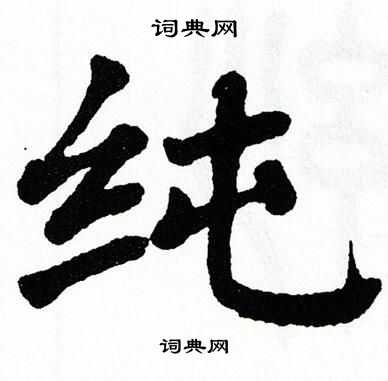 词典网
纯
词典网